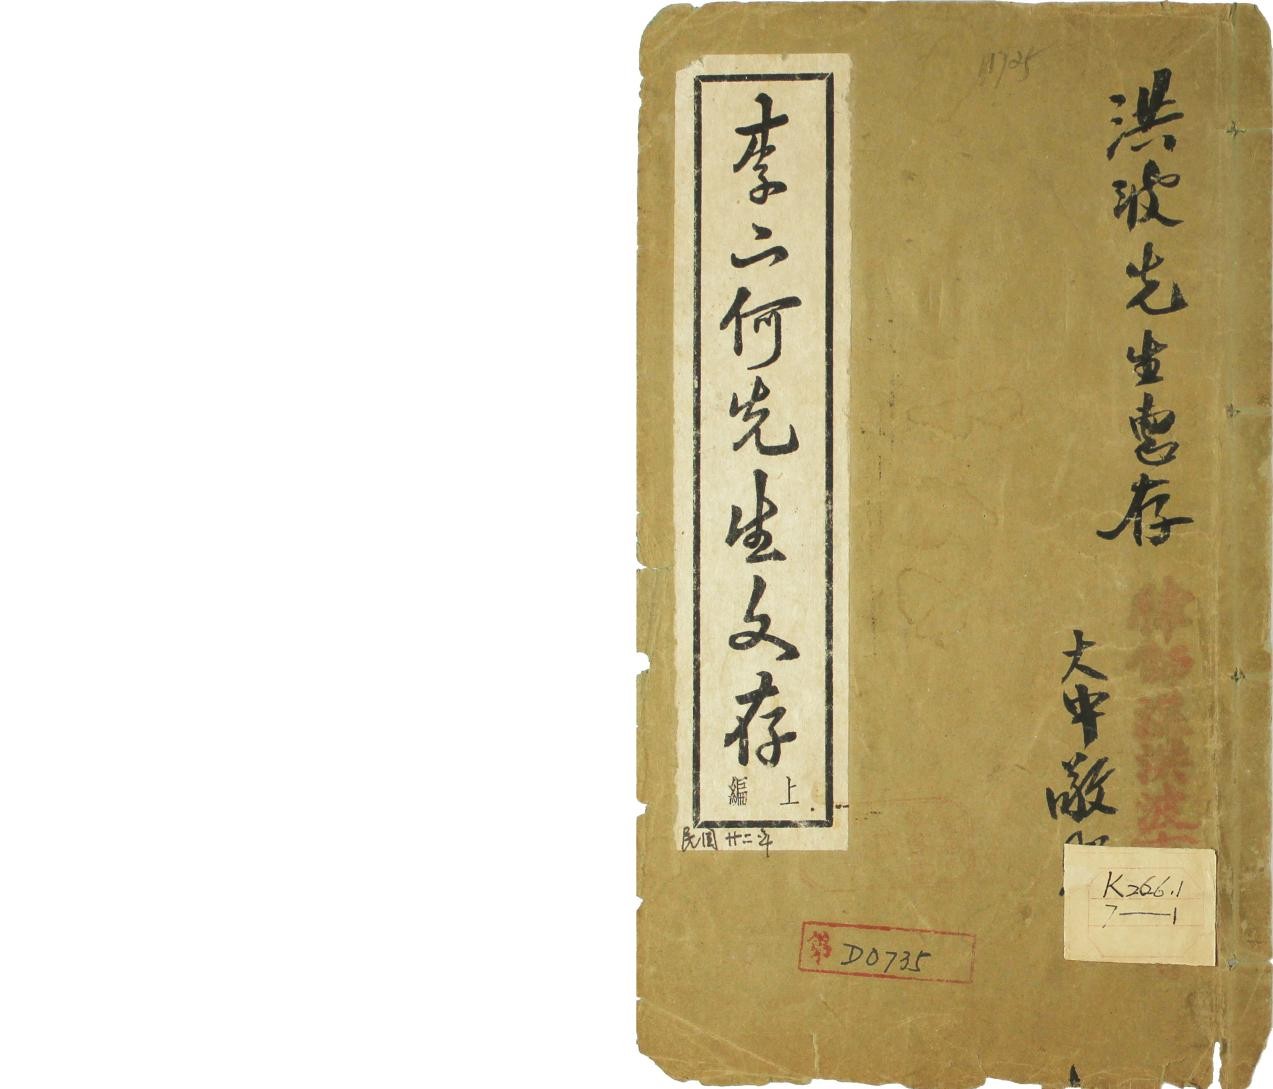 洪波先生惠存
大中敬
李二何先生文存
上編
民國廿二年
11725
K266.1
7—1
第 D0735